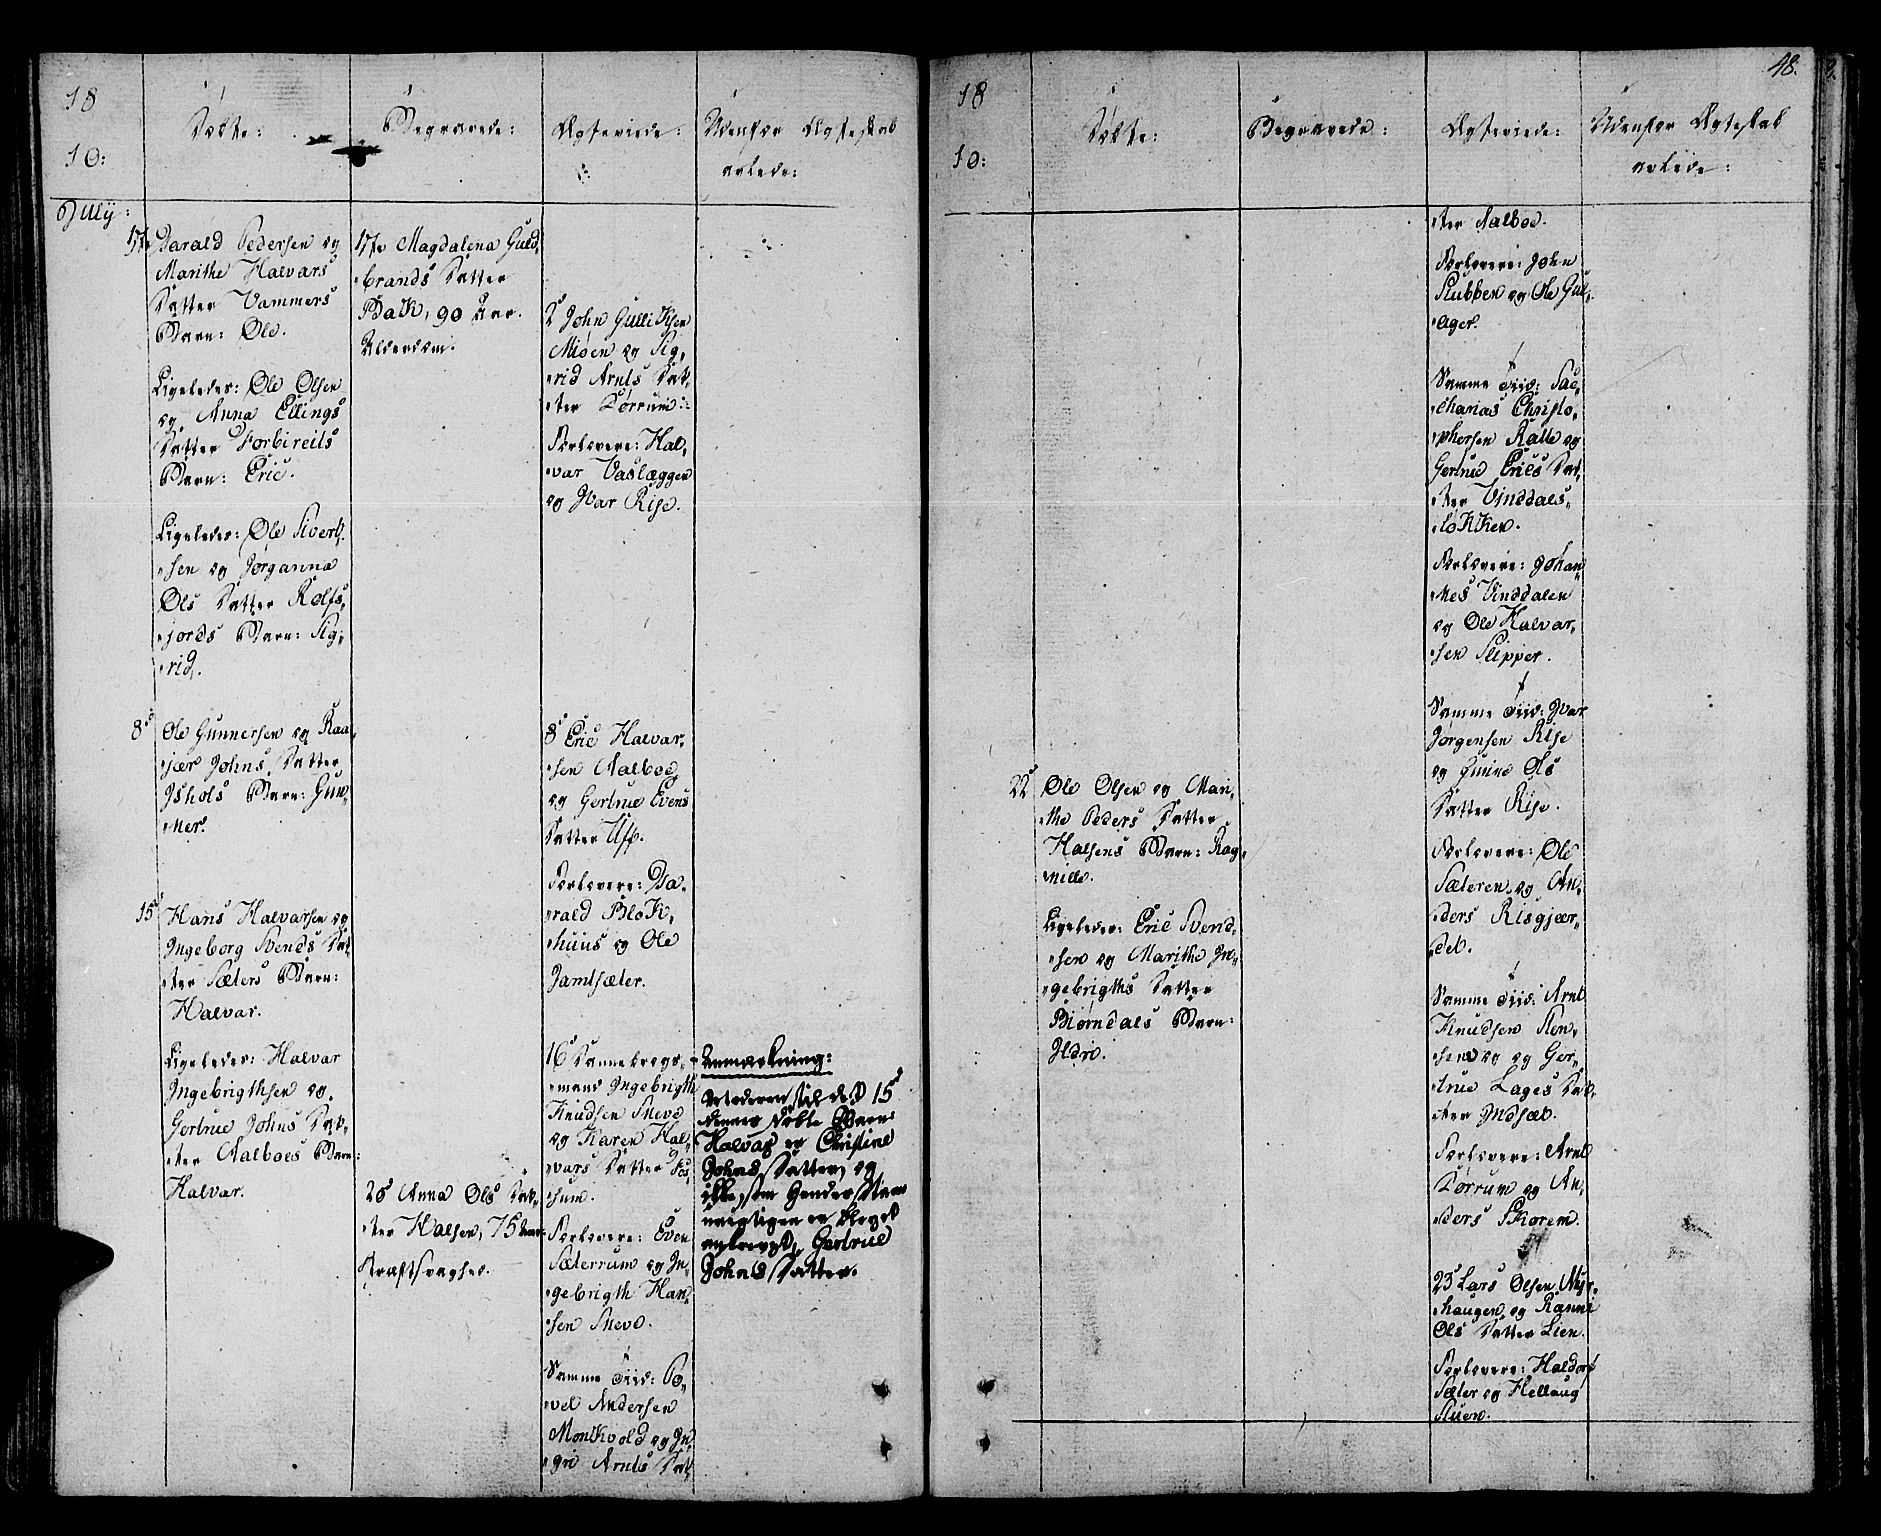 18
10:
Døbte:
Begravede:
Ægteviede:
Udenfor Ægteskab
avlede:
July:
1ste Harald Pedersen og
Marithe Halvars
Datter Vammers
Barn: Ole.
Ligeledes: Ole Olsen
og Anna Ellings
Datter Forbireits
Barn: Eric.
Ligeledes: Ole Sivert
sen og Jørganna
Ols Datter Rolfs,
jords Barn: Sig,
rid.
8d Ole Gunnersen og Raa,
jær Johns Datter
Ishols Barn: Gun,
ner.
15d Hans Halvarsen og
Ingeborg Svends Dat,
ter Sæters Barn:
Halvar.
Ligeledes: Halvar
Ingebrigthsen og
Gertrue Johns Dat,
ter Aalboes Barn:
Halvar.
1ste Magdalena Guld,
brands Datter
Bak, 90 Aar.
Alderdom.
20d Anna Ols Dat,
ter Halsen, 75 Aar
Kraftsvaghed.
2d John Gulliksen
Miøen og Sig,
rid Arnts Dat,
ter Dørrum.
Forlovere: Hal,
var Vaslæggen
og Ivar Rise.
8d Eric Halvar,
sen Aalboe
og Gertrue Evens
Datter Uff.
Forlovere: Ha,
rald Blok,
huus og Ole
Jamtsæter.
16d Dannebrogs,
mand Ingebrigth
Knudsen Sneve
og Karen Hal,
vars Datter Fos,
sum.
Forlovere: Even
Sæterrum og In,
gebrigth Han,
sen Sneve.
Samme Tiid: Po,
vel Andersen
Monkvold og In,
gri Arnts Dat,
Anmærkning:
til det d: 15d
dennes døbte Barn
Halvar er Christine
Johns Datter, og
ikke, som
er bleven
Gertrue
Johns Datter.
48.
18
10:
Døbte:
Begravede:
Ægteviede:
Udenfor Ægteskab
avlede:
22d Ole Olsen og Mari,
the Peders Datter
Halsens Barn: Rag,
nille.
Ligeledes: Eric Svend,
sen og Marithe In,
gebrigths Datter
Biørndals Barn:
Ildri.
ter Aalboe.
Forlovere: John
Stubben og Ole Gul,
ager.
Samme Tiid: Sac,
charias Christo,
phersen Ralle og
Gertrue Erics Dat,
ter Vinddals,
løkken.
Forlovere: Johan,
nes Vinddalen
og Ole Halvar,
sen Slipper.
Samme Tiid: Ivar
Jørgensen Rise
og Guine Ols
Datter Rise.
Forlovere: Ole
Sæteren, og An,
ders Risgjær,
det.
Samme Tiid: Arnt
Knudsen Sten,
og Ger,
true Lages Dat,
ter Indset.
Forlovere: Arnt
Dørrum og An,
ders Skorem.
23d Lars Olsen Myr,
haugen, og Rænni
Ols Datter Lien.
Forlovere: Haldor
Sæter og Hellaug
Stuen.